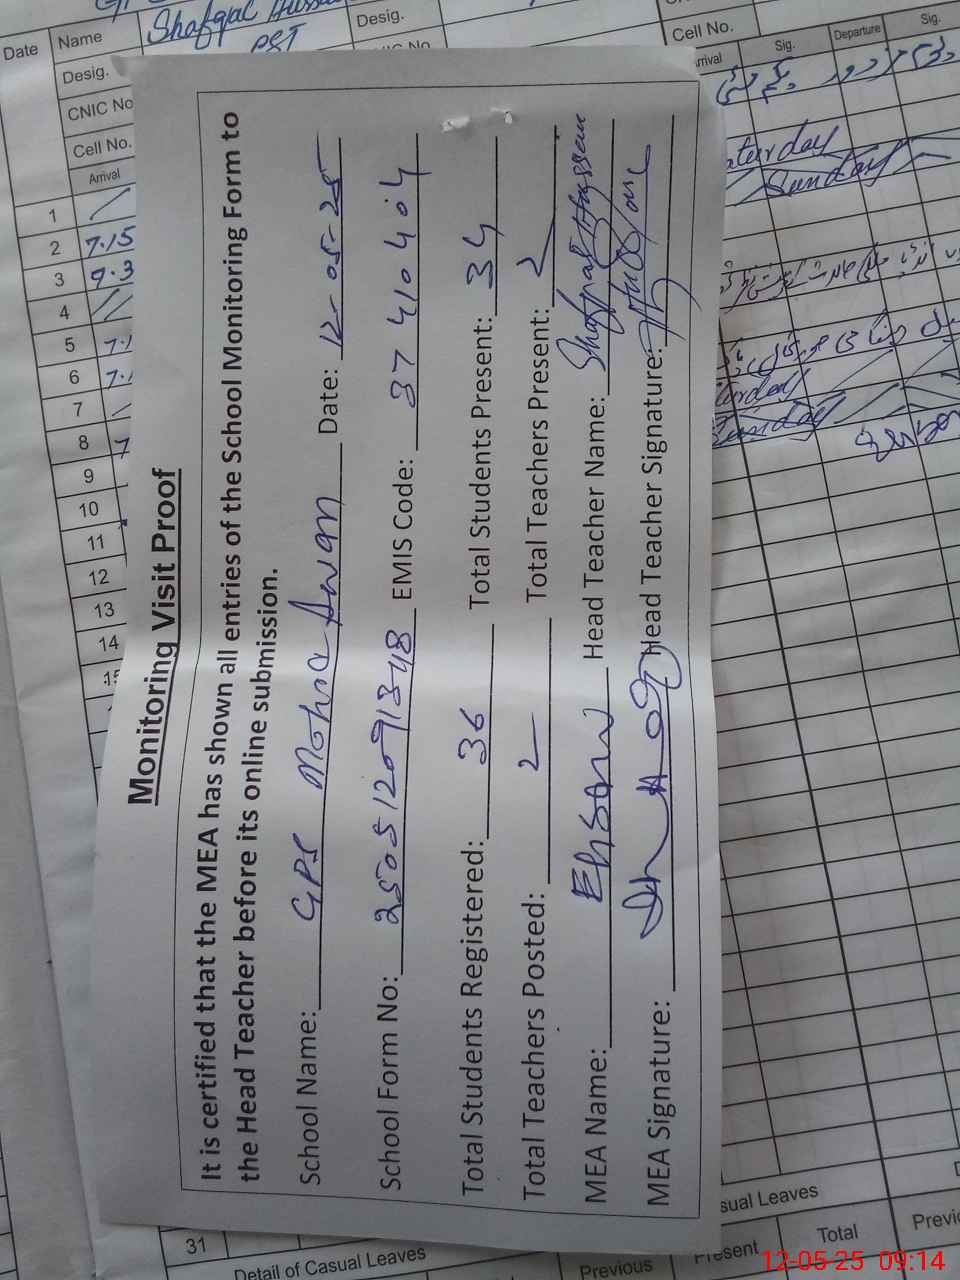 Date Name Shafqat Hussain Desig.
Desig. PST
CNIC No
Cell No.
Arrival
1
2 7.15
3 9.3
4
5 7.1
6 7.1
7
8 7
9
10
11
12
13
14
15
31
Cell No.
Arrival Sig. Departure Sig.
Saturday
Sunday
Sunday
Monitoring Visit Proof
It is certified that the MEA has shown all entries of the School Monitoring Form to
the Head Teacher before its online submission.
School Name: GPS Mohra Awan Date: 12-05-25
School Form No: 250512091348 EMIS Code: 37410404
Total Students Registered: 36 Total Students Present: 34
Total Teachers Posted: 2 Total Teachers Present: 2
MEA Name: Ehsan Head Teacher Name: Shafqat Hussain
MEA Signature: Head Teacher Signature:
Detail of Casual Leaves
Previous Present Total
12-05-25 09:14